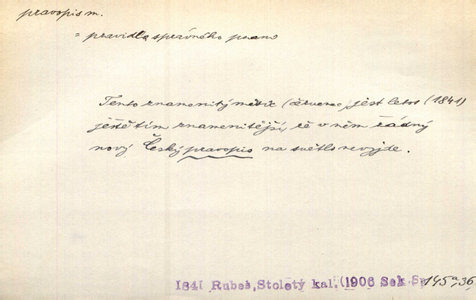 pravopis m.
= pravidla správného psaní
Tento znamenitý měsíc (červenec) jest letos (1841)
ještě tím znamenitější, že v něm žádný
nový Český pravopis na světlo nevyjde.
1841 Rubeš, Stoletý kal. (1906 Sek. Sp. 145a, 36,